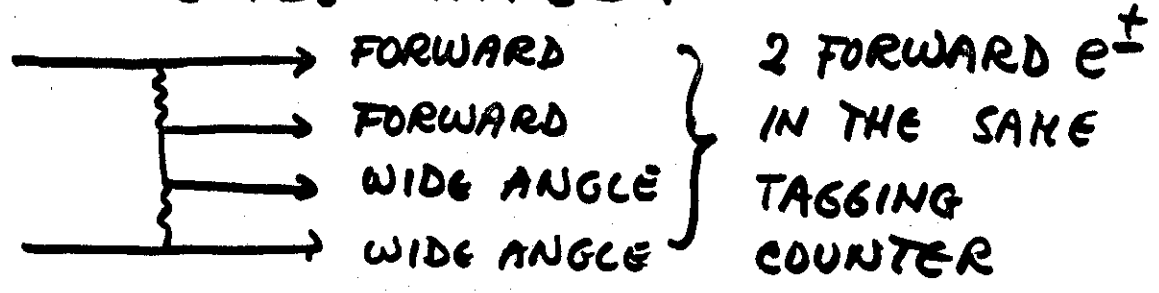 FORWARD
FORWARD
WIDE ANGLE
WIDE ANGLE
2 FORWARD e±
IN THE SAME
TAGGING
COUNTER